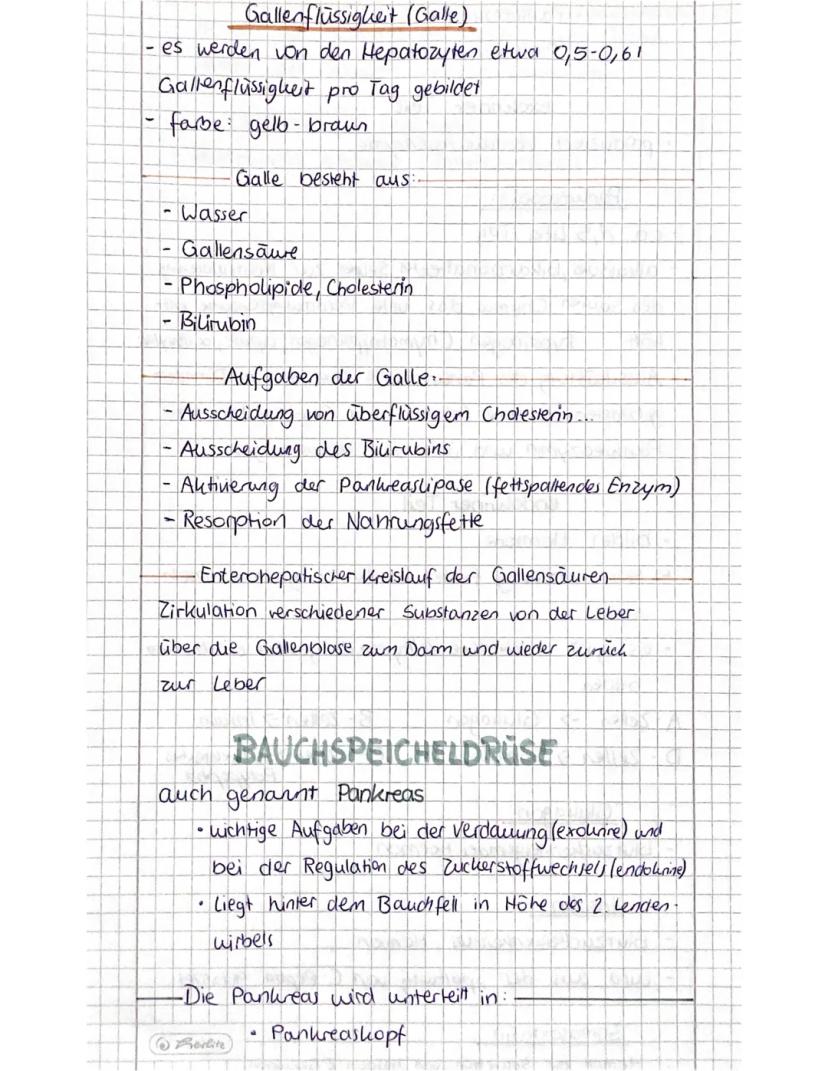 Gallenflüssigkeit (Galle)
- es werden von den Hepatozyten etwa 0,5-0,6l
Gallenflüssigkeit pro Tag gebildet
- farbe: gelb-braun
Galle besteht aus:
- Wasser
- Gallensäure
- Phospholipide, Cholesterin
- Bilirubin
Aufgaben der Galle:
- Ausscheidung von überflüssigem Cholesterin...
- Ausscheidung des Bilirubins
- Aktivierung der Pankreaslipase (fettspaltendes Enzym)
- Resorption der Nahrungsfette
Enterohepatischer Kreislauf der Gallensäuren
Zirkulation verschiedener Substanzen von der Leber
über die Gallenblase zum Darm und wieder zurück
zur Leber
BAUCHSPEICHELDRÜSE
auch genannt Pankreas
• wichtige Aufgaben bei der Verdauung (exokrine) und
bei der Regulation des Zuckerstoffwechsels (endokrine)
• liegt hinter dem Bauchfell in Höhe des 2. Lenden-
wirbels
Die Pankreas wird unterteilt in:
• Pankreaskopf